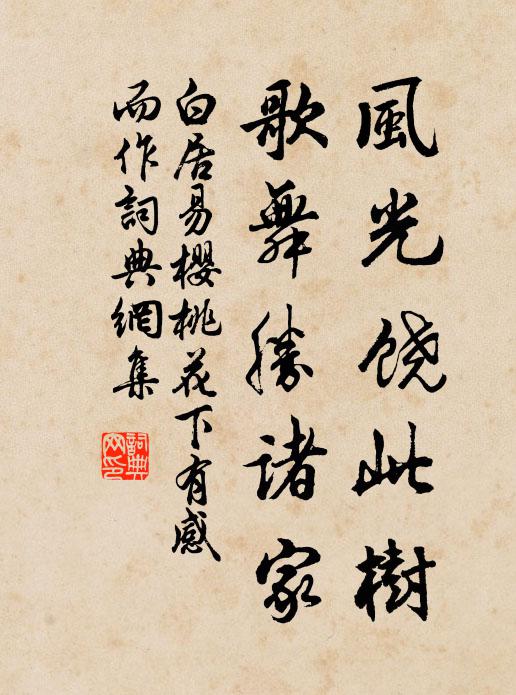 風光饒此樹
歌舞勝諸家
白居易櫻桃花下有感
而作詞典網集
詞典
网印